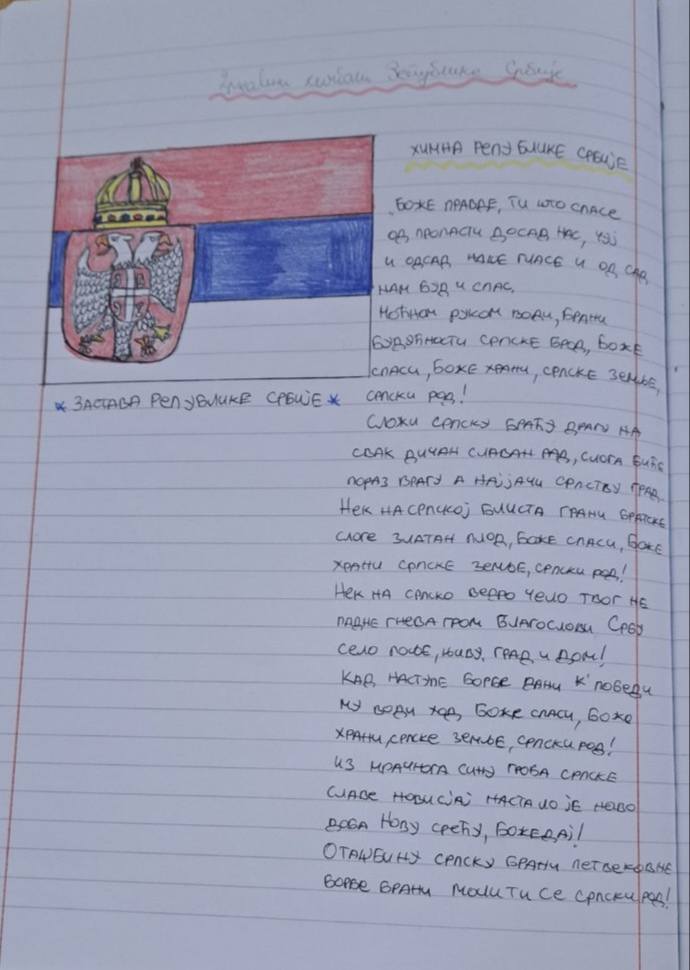 Државни симболи Републике Србије
ХИМНА РЕПУБЛИКЕ СРБИЈЕ
„БОЖЕ ПРАВДЕ, ТИ ШТО СПАСЕ
ОД ПРОПАСТИ ДОСАД НАС, ЧУЈ
И ОДСАД НАШЕ ГЛАСЕ И ОД САД
НАМ БУД И СПАС.
МОЋНОМ РУКОМ ВОДИ, БРАНИ
БУДУЋНОСТИ СРПСКЕ БРОД, БОЖЕ
СПАСИ, БОЖЕ ХРАНИ, СРПСКЕ ЗЕМЉЕ,
СРПСКИ РОД!
* ЗАСТАВА РЕПУБЛИКЕ СРБИЈЕ *
СЛОЖИ СРПСКУ БРАЋУ ДРАГУ НА
СВАК ДИЧАН СЛАВАН РАД, СЛОГА БИЋЕ
ПОРАЗ ВРАГУ А НАЈЈАЧИ СРПСТВУ ГРАД.
НЕК НА СРПСКОЈ БЛИСТА ГРАНИ БРАТСКЕ
СЛОГЕ ЗЛАТАН ПЛОД, БОЖЕ СПАСИ, БОЖЕ
ХРАНИ СРПСКЕ ЗЕМЉЕ, СРПСКИ РОД!
НЕК НА СРПСКО ВЕДРО ЧЕЛО ТВОГ НЕ
ПАДНЕ ГНЕВА ГРОМ БЛАГОСЛОВИ СРБУ
СЕЛО ПОЉЕ, ЊИВУ, ГРАД И ДОМ!
КАД НАСТУПЕ БОРБЕ ДАНИ К' ПОБЕДИ
МУ ВОДИ ХОД, БОЖЕ СПАСИ, БОЖЕ
ХРАНИ, СРПСКЕ ЗЕМЉЕ, СРПСКИ РОД!
ИЗ МРАЧНОГА СИНУ ГРОБА СРПСКЕ
СЛАВЕ НОВИ СЈАЈ НАСТАЛО ЈЕ НОВО
ДОБА НОВУ СРЕЋУ, БОЖЕ ДАЈ!
ОТАЏБИНУ СРПСКУ БРАНИ ПЕТВЕКОВНЕ
БОРБЕ БРАНИ МОЛИ ТИ СЕ СРПСКИ РОД!